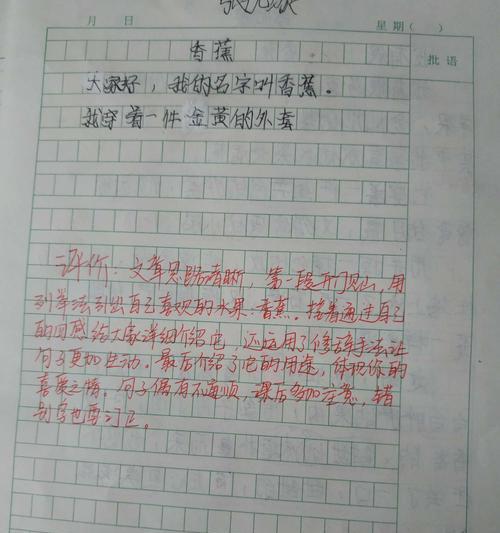 月 日 星期（ ）
批语
香蕉
大家好，我的名字叫香蕉。
我穿着一件金黄的外套
评价：文章思路清晰，第一段开门见山，用
列举法引出自己喜欢的水果-香蕉。接着通过自己
的回感给大家详细介绍它，还运用了修辞手法让
句子更加生动。最后介绍了它的用途，体现你的
喜爱之情。句子偶有不通顺，课后多加注意，错
别字也要订正。